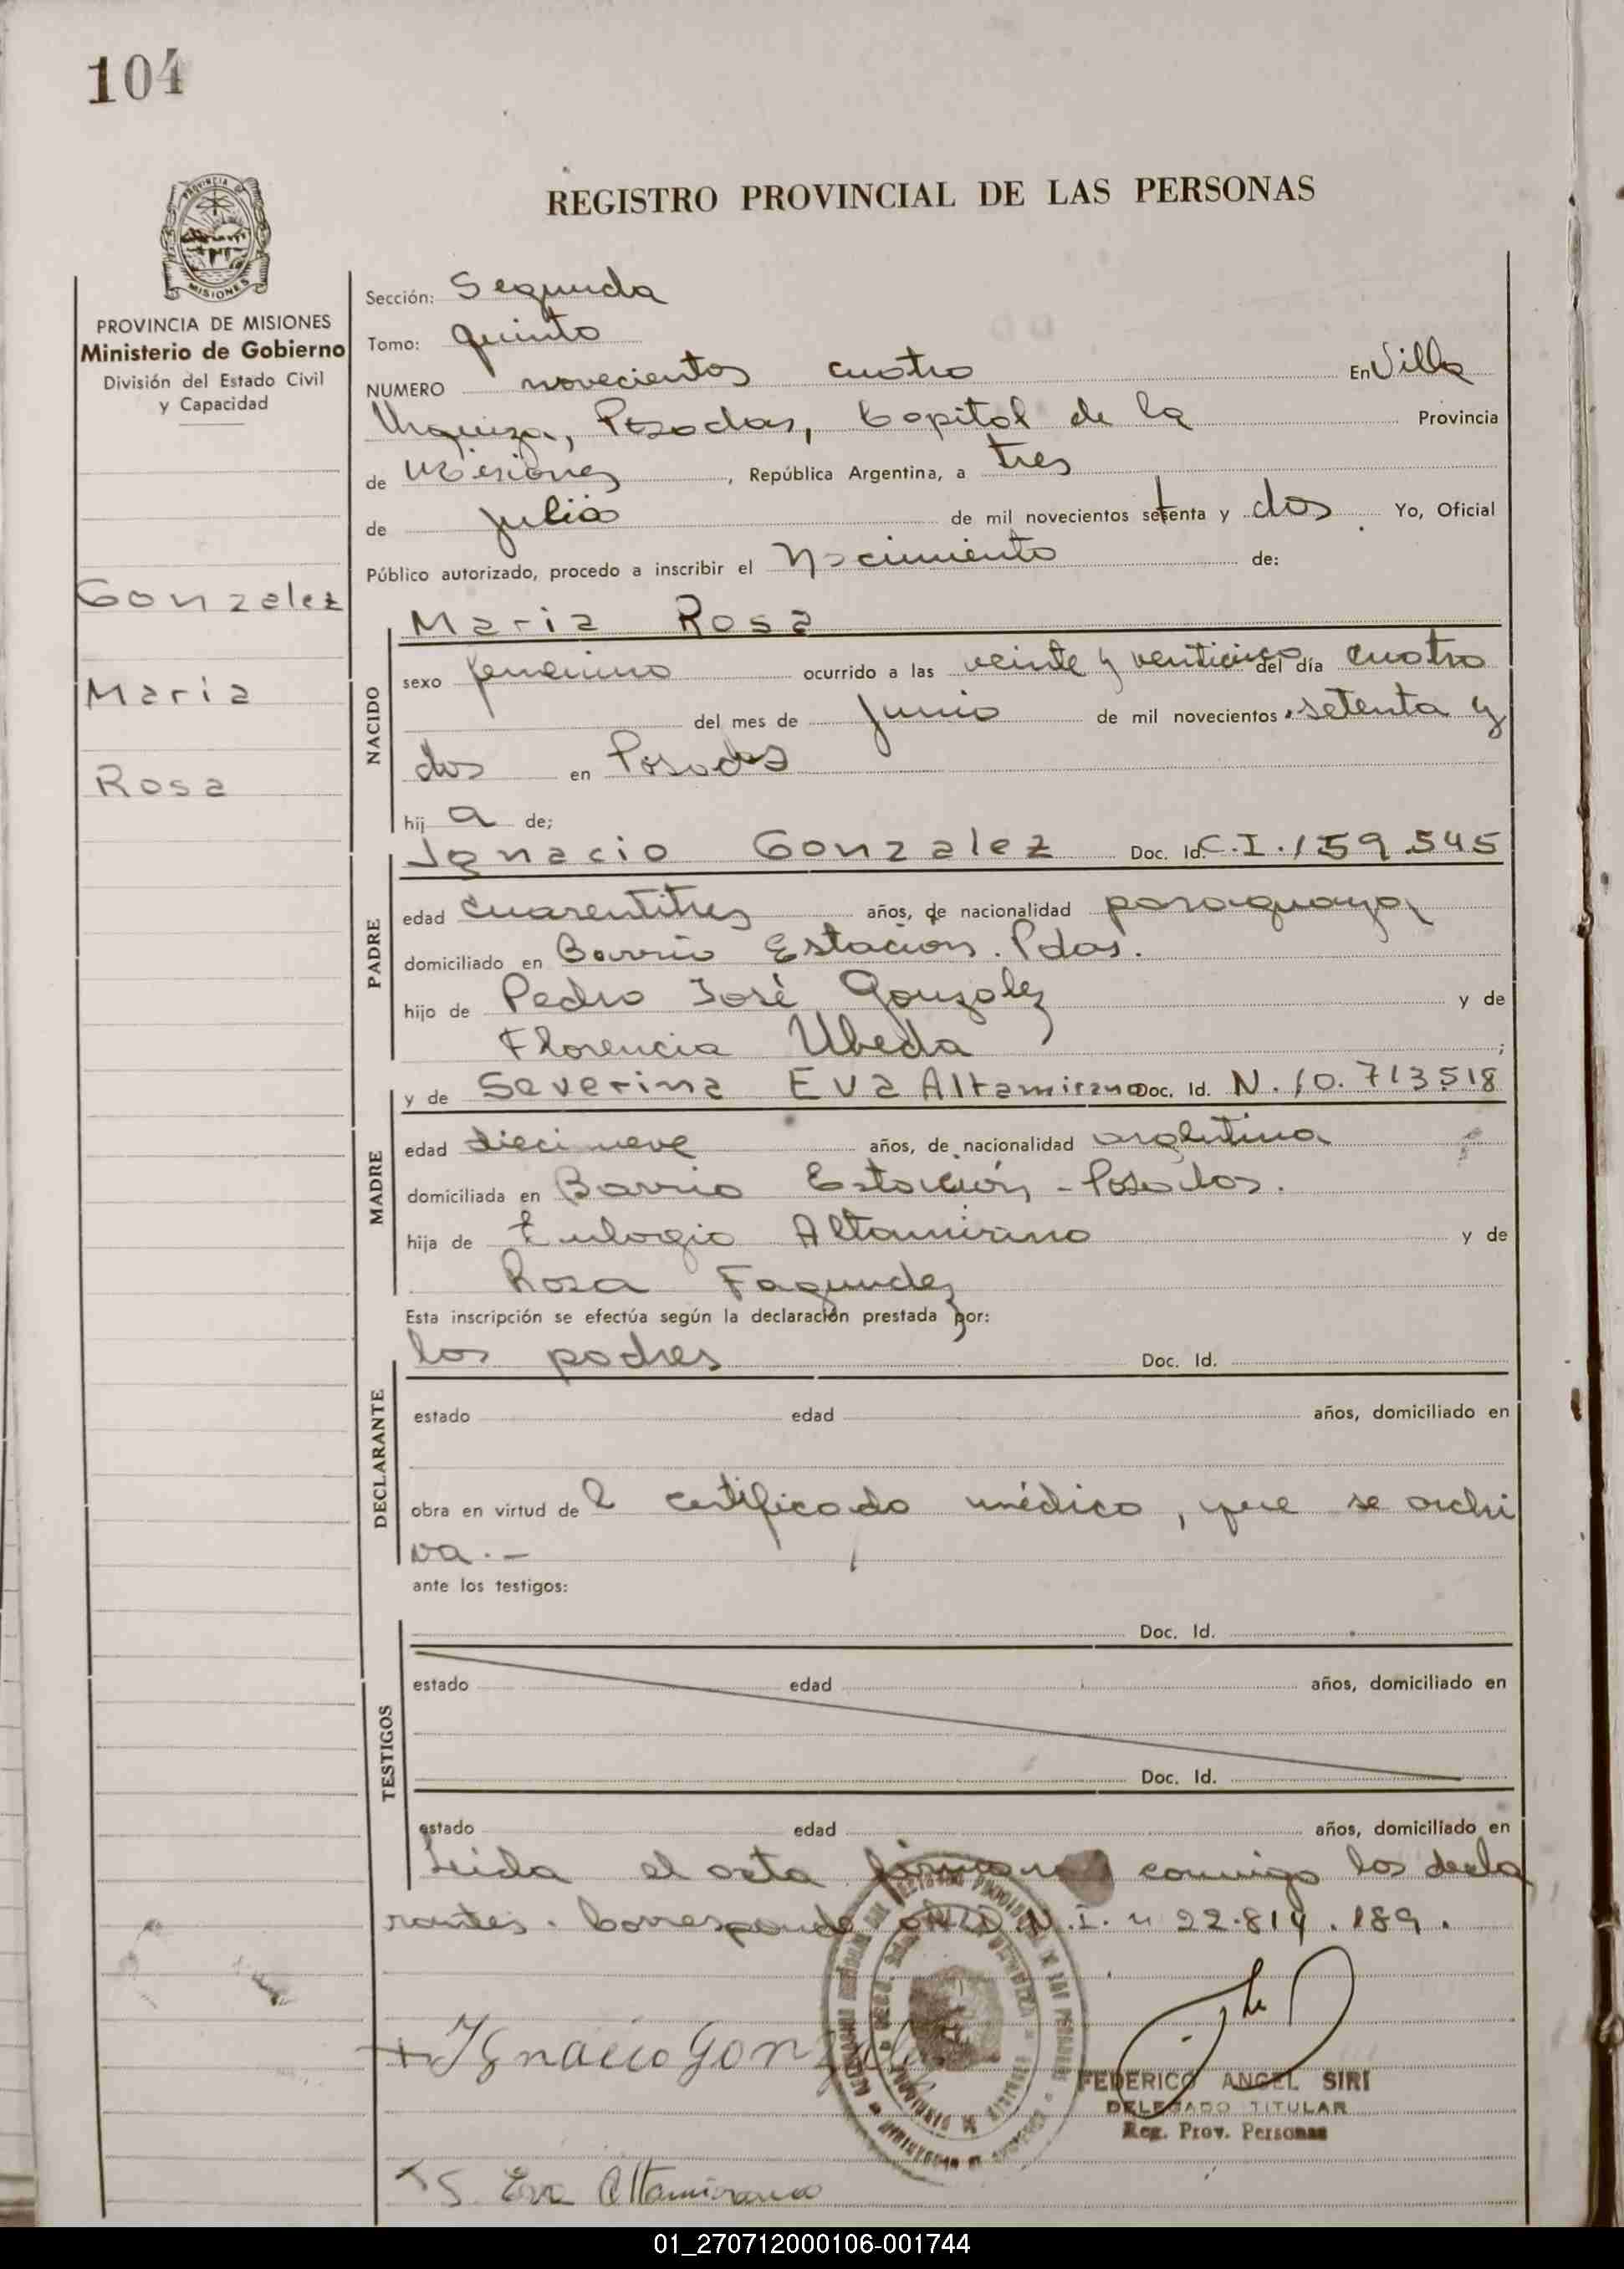 104
REGISTRO PROVINCIAL DE LAS PERSONAS
PROVINCIA DE MISIONES
MISIONES
PROVINCIA DE MISIONES
Ministerio de Gobierno
División del Estado Civil
y Capacidad
Gonzalez
Maria
Rosa
Sección: Segunda
Tomo: quinto
NUMERO novecientos cuatro En Villa
Urquiza, Posadas, Capital de la Provincia
de Misiones, República Argentina, a tres
de julio de mil novecientos setenta y dos. Yo, Oficial
Público autorizado, procedo a inscribir el Nacimiento de:
NACIDO
Maria Rosa
sexo femenino ocurrido a las veinte y venticinco del día cuatro
del mes de Junio de mil novecientos setenta y
dos en Posadas
hij a de;
PADRE
Ignacio Gonzalez Doc. Id. C.I. 159.545
edad cuarentitres años, de nacionalidad paraguaya,
domiciliado en Barrio Estación. Pdas.
hijo de Pedro José Gonzalez y de
Florencia Ubeda ;
MADRE
y de Severina Eva Altamirano Doc. Id. N. 10.713518
edad diecinueve años, de nacionalidad argentina
domiciliada en Barrio Estación - Posadas.
hija de Eulogio Altamirano y de
Rosa Fagundez
Esta inscripción se efectúa según la declaración prestada por:
DECLARANTE
los padres Doc. Id.
estado edad años, domiciliado en
obra en virtud de certificado médico, que se archi
va.-
ante los testigos:
TESTIGOS
Doc. Id.
estado edad años, domiciliado en
Doc. Id.
estado edad años, domiciliado en
Leida el acta firman conmigo los decla
rantes. Corresponde D.N.I. n 22.814.189.
Ignacio Gonzalez
FEDERICO ANGEL SIRI
DELEGADO TITULAR
Reg. Prov. Personas
S. Eva Altamirano
01_270712000106-001744